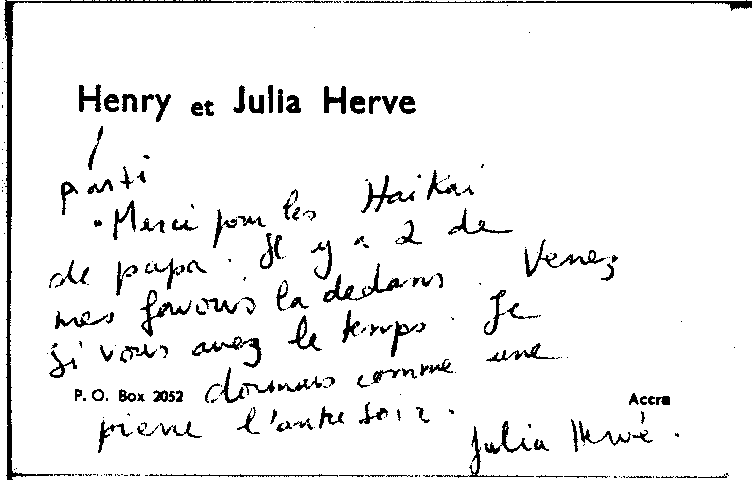 Henry et Julia Herve
parti
. Merci pour les Haïkaï
de papa. Il y a 2 de
mes favoris la dedans. Venez
si vous avez le temps. Je
dormais comme une
P. O. Box 2052
Accra
pierre l'autre soir.
Julia Hervé.